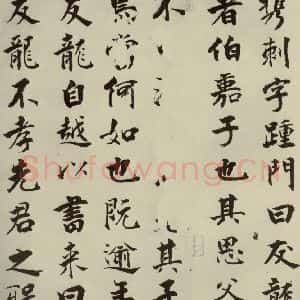 携刺字踵門曰友龍
者伯嘉子也其思父
不其子
焉當何如也既逾年
友龍自越以書來曰
友龍不孝先君之
Shufawang.CN